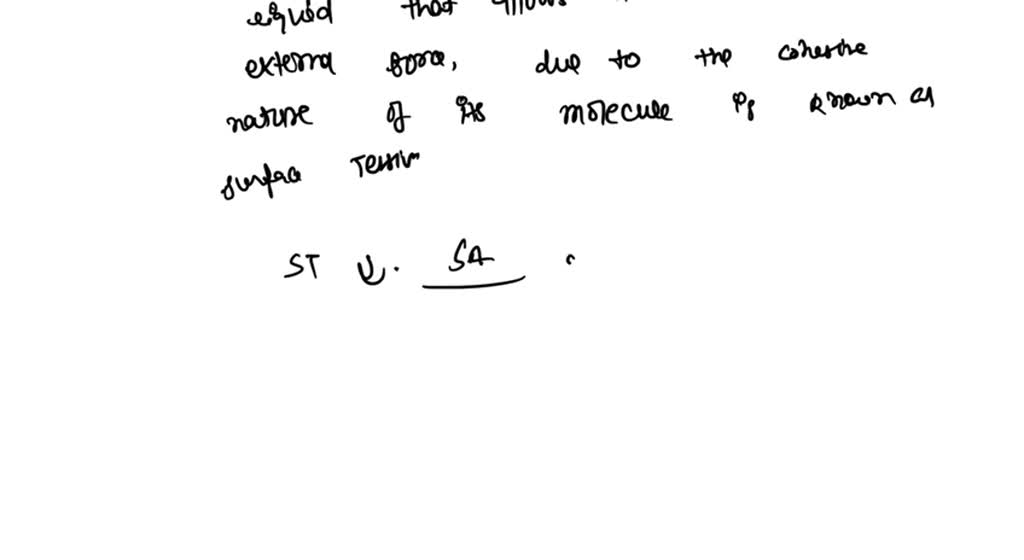 liquid that allows
external force, due to the cohesive
nature of its molecule is known as
surface Tension
ST ↓. SA